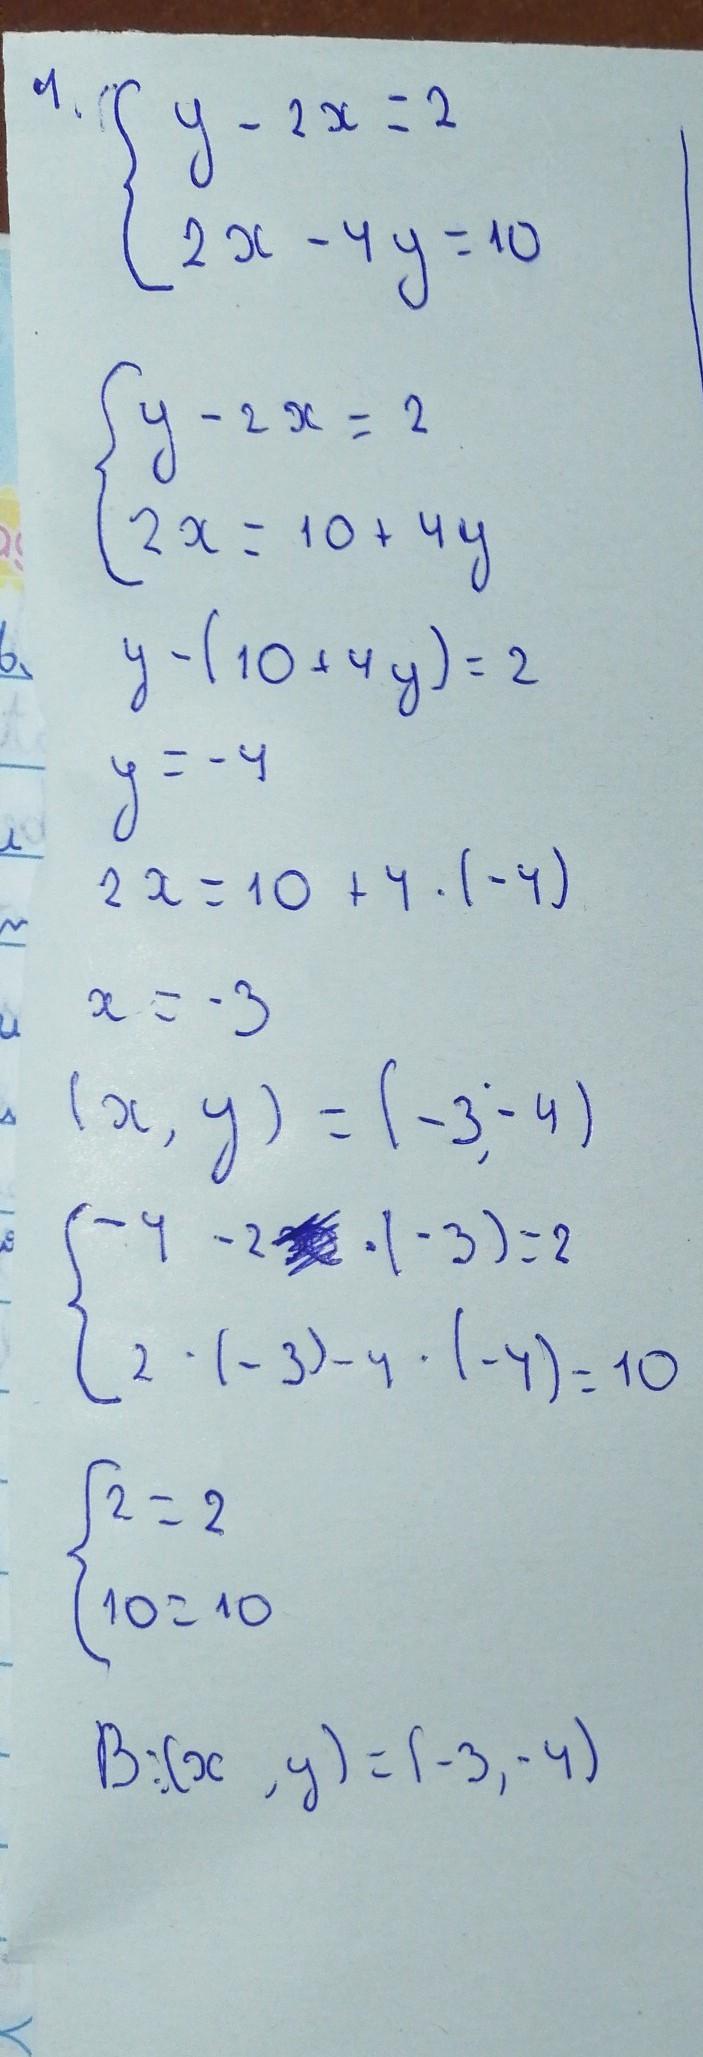 1. { y - 2x = 2
2x - 4y = 10
{ y - 2x = 2
2x = 10 + 4y
y - (10 + 4y) = 2
y = -4
2x = 10 + 4 · (-4)
x = -3
(x, y) = (-3, -4)
{ -4 - 2 · (-3) = 2
2 · (-3) - 4 · (-4) = 10
{ 2 = 2
10 = 10
В: (x, y) = (-3, -4)